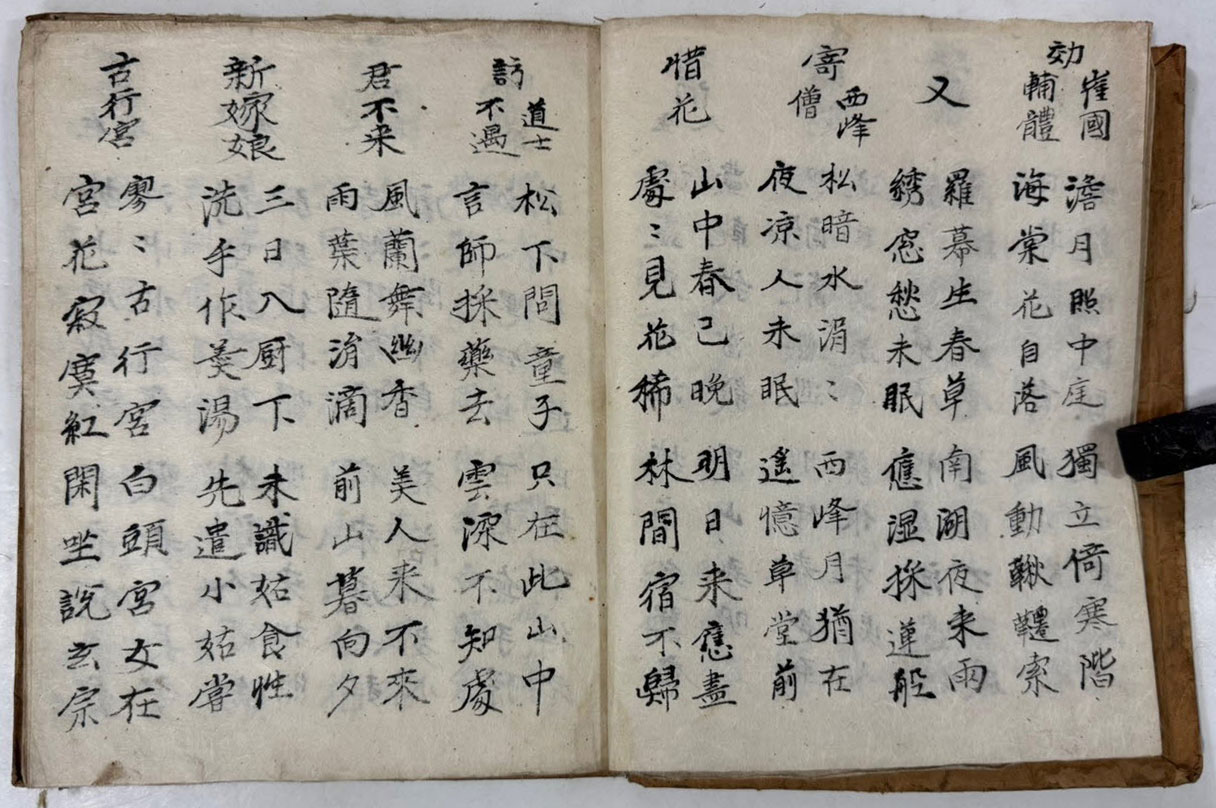 効崔國輔體
澹月照中庭 獨立倚寒階
海棠花自落 風動鞦韆索
又
羅幕生春草 南湖夜来雨
綉窓愁未眠 應湿採蓮船
寄西峰僧
松暗水涓〻 西峰月猶在
夜凉人未眠 遙憶草堂前
惜花
山中春已晚 明日来應盡
處〻見花稀 林間宿不歸
訪道士不遇
松下問童子 只在此山中
言師採藥去 雲深不知處
君不来
風蘭舞幽香 美人来不來
雨葉隨涓滴 前山暮向夕
新嫁娘
三日入厨下 未識姑食性
洗手作羹湯 先遣小姑嘗
古行宮
寥〻古行宮 白頭宮女在
宮花寂寞紅 閑坐說玄宗